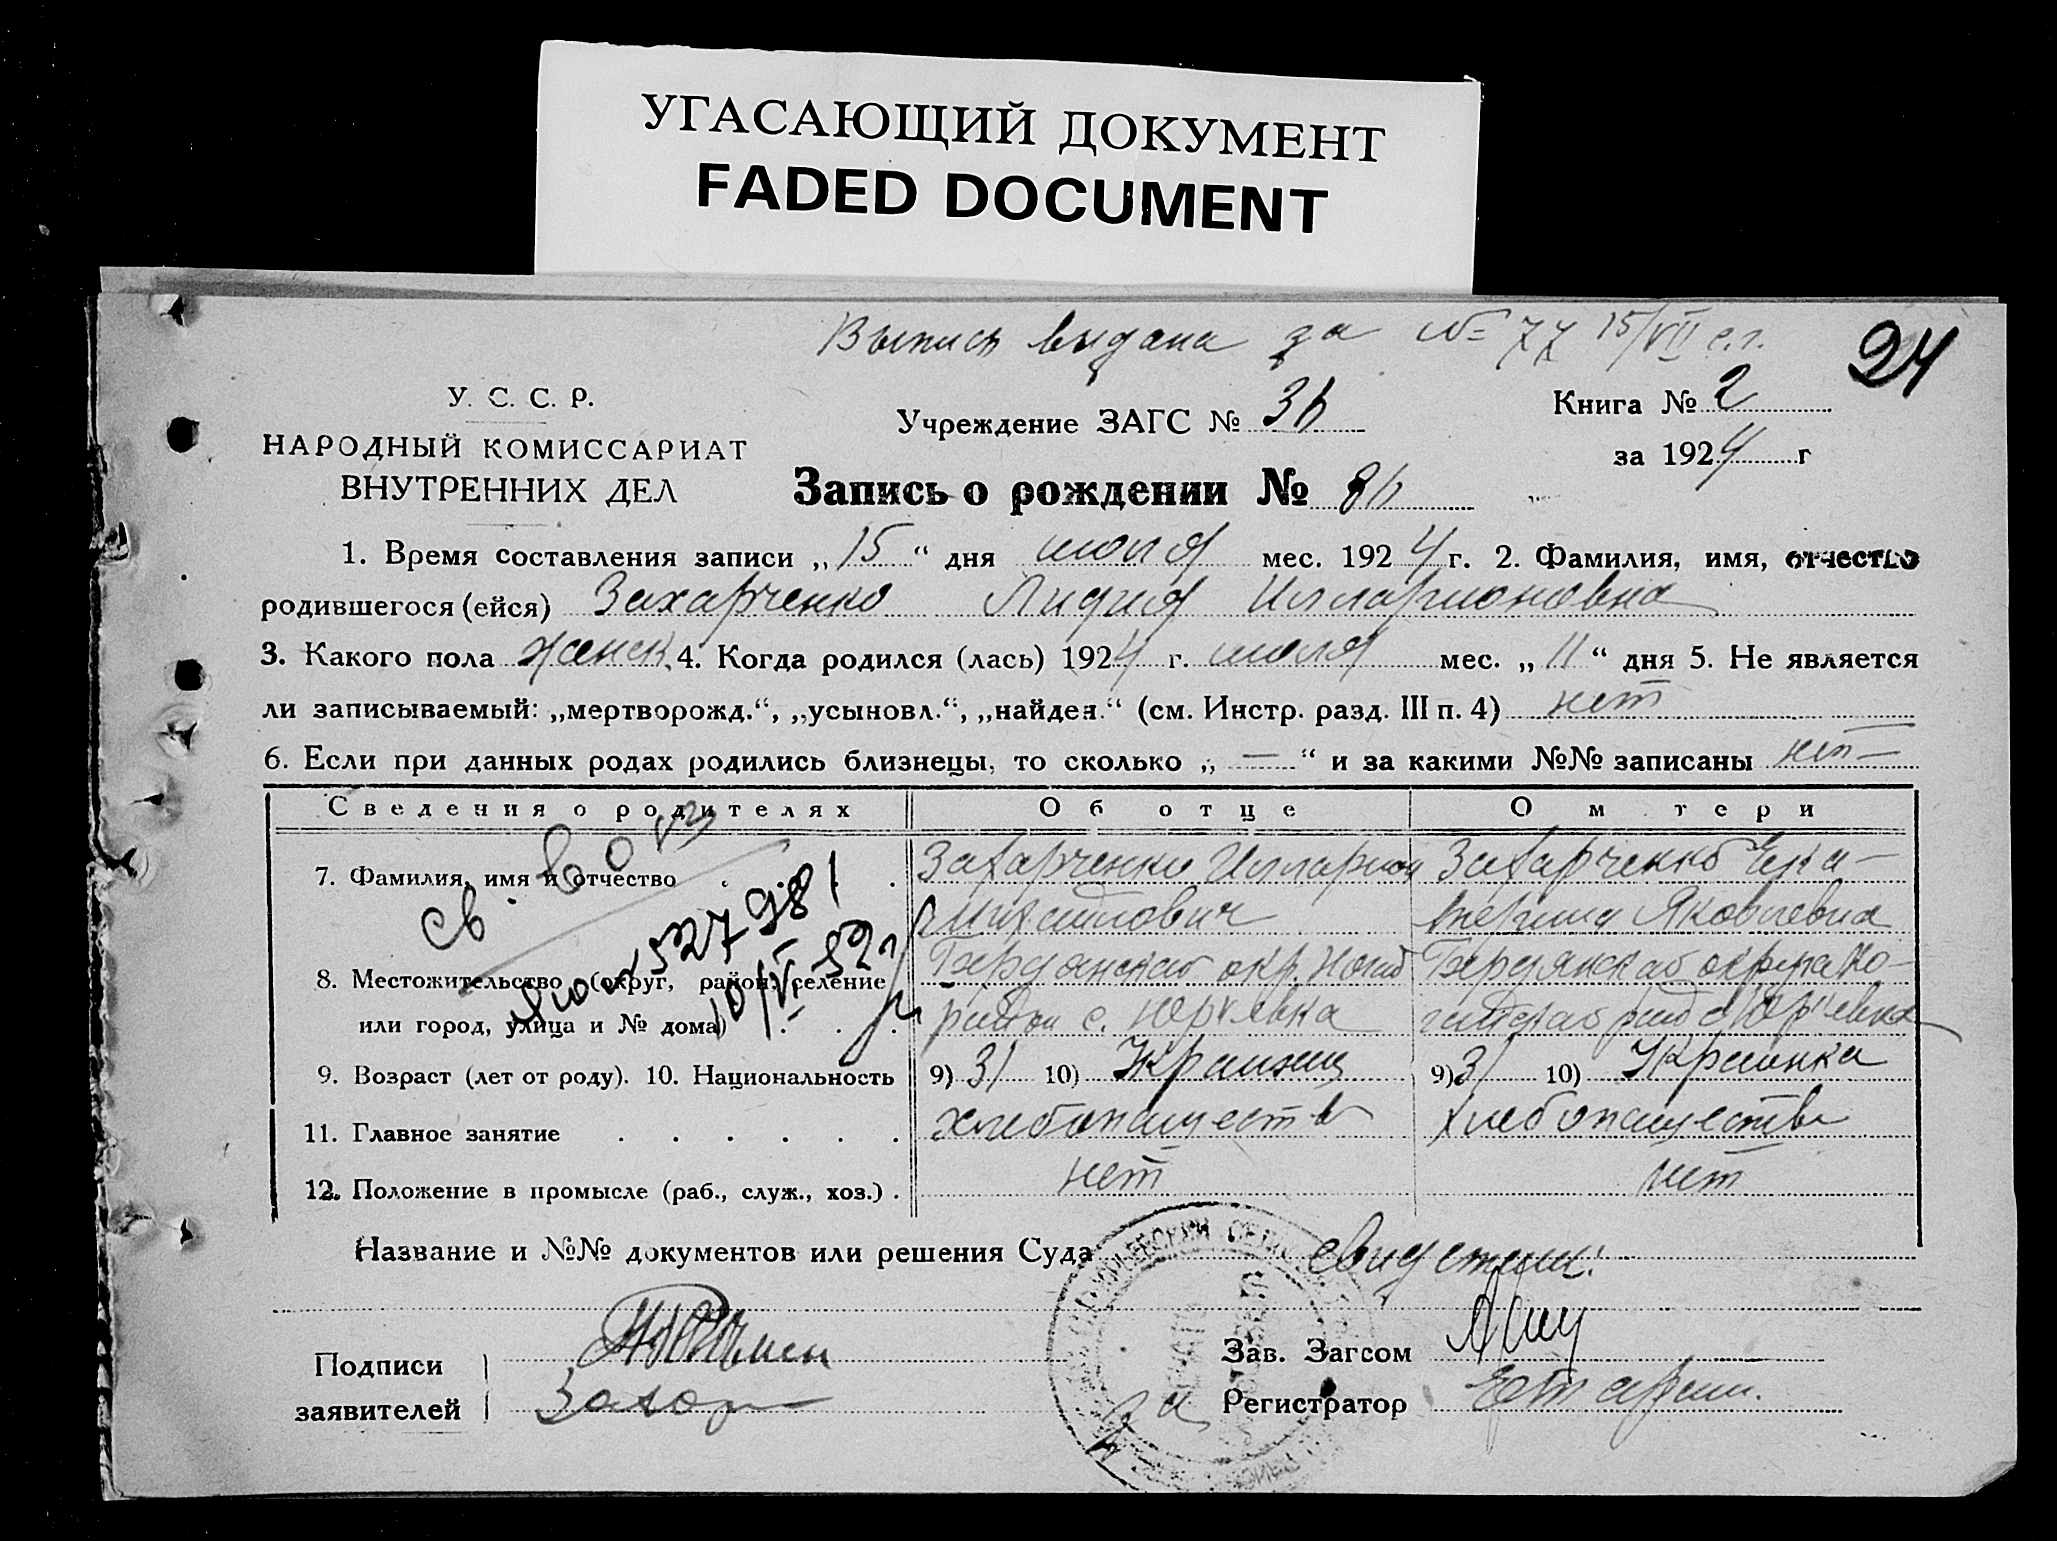 УГАСАЮЩИЙ ДОКУМЕНТ
FADED DOCUMENT
Выпись выдана за № 77 15/VII с.г.
24
У. С. С. Р.
НАРОДНЫЙ КОМИССАРИАТ
ВНУТРЕННИХ ДЕЛ
Учреждение ЗАГС №
Книга № 2
за 1924 г
Запись о рождении №
1. Время составления записи „15“ дня июля мес. 1924 г. 2. Фамилия, имя, отчество
родившегося (ейся) Захарченко Лидия Илларионовна
3. Какого пола женск. 4. Когда родился (лась) 1924 г. июля мес. „11“ дня 5. Не является
ли записываемый: „мертворожд.“, „усыновл.“, „найден.“ (см. Инстр. разд. III п. 4) нет
6. Если при данных родах родились близнецы, то сколько „—“ и за какими №№ записаны нет
Сведения о родителях Об отце О м тери
7. Фамилия, имя и отчество . . . Захарченко Илларион Захарченко Ека-
Михайлович терина Яковлевна
св.
527981
10/VI-52 г
8. Местожительство (округ, район, селение Бердянская окр. Ногай Бердянская округа Но-
или город, улица и № дома) . . район с. Юрьевка гайская рай с Юрьевка
9. Возраст (лет от роду). 10. Национальность 9) 31 10) Украинец 9) 31 10) Украинка
11. Главное занятие . . . . . . хлебопашеств хлебопашество
12. Положение в промысле (раб., служ., хоз.) . нет нет
Название и №№ документов или решения Суда
Подписи
заявителей Захар
Зав. Загсом
за Регистратор